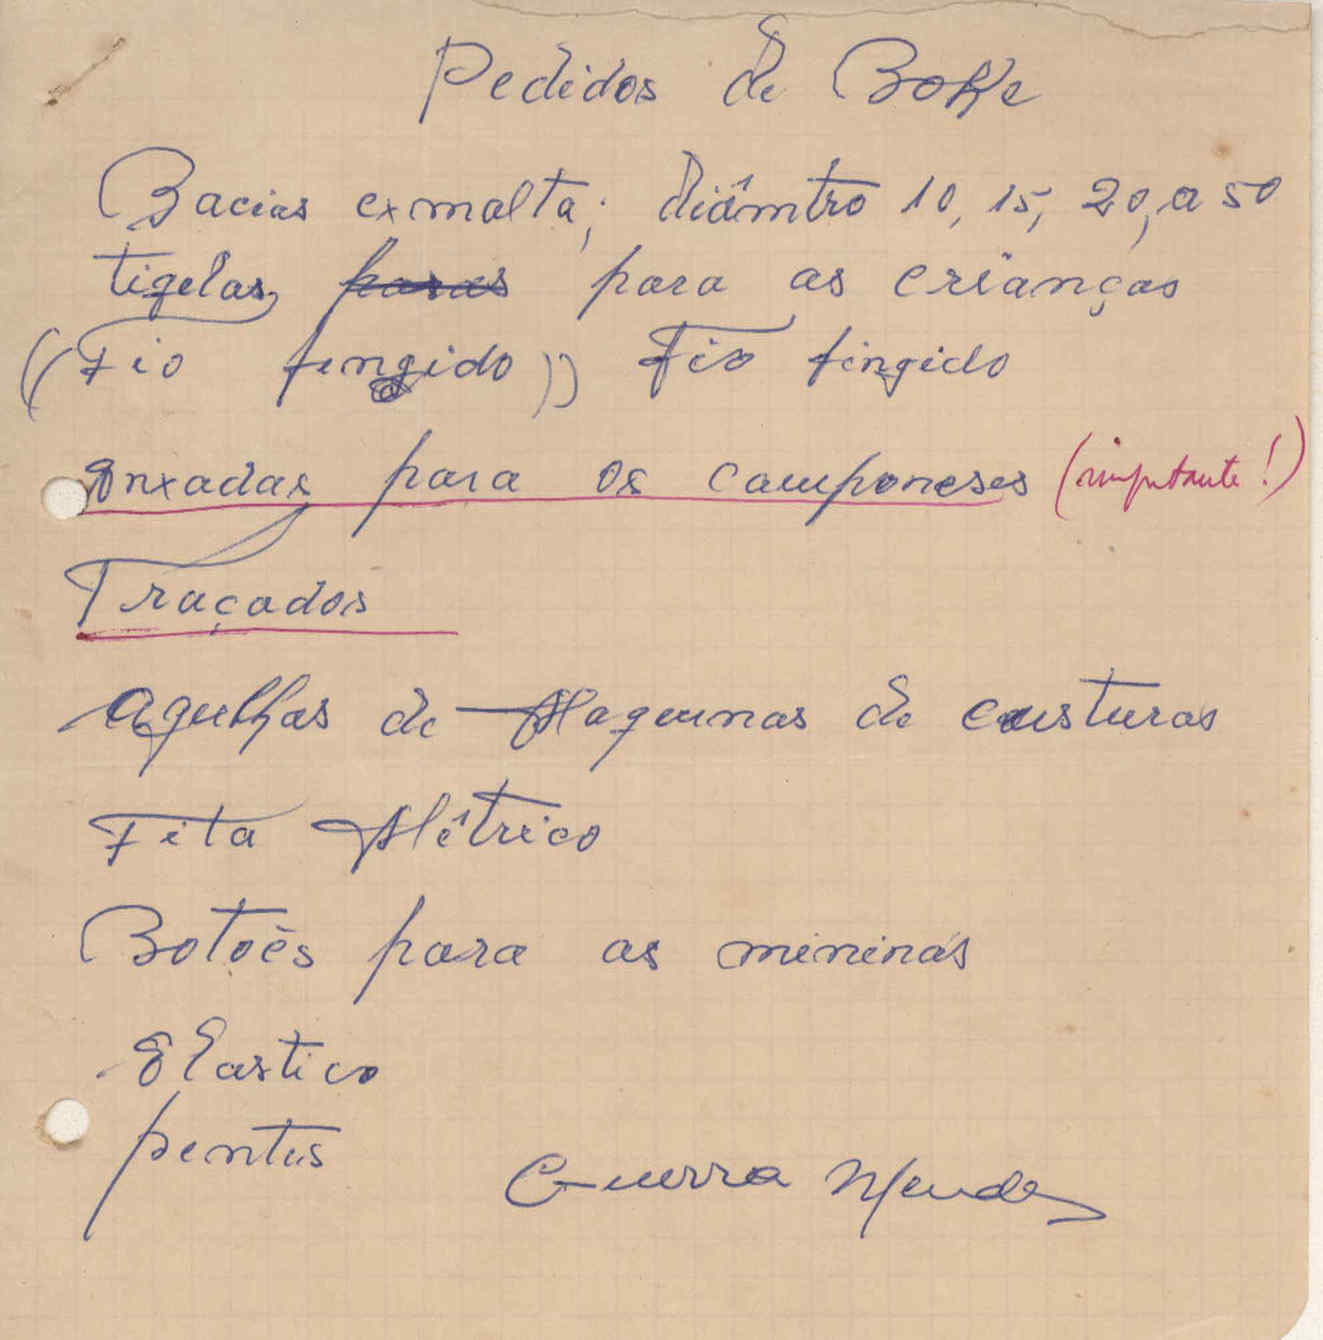 Pedidos de Boke
Bacias exmalta; diâmtro 10, 15, 20, a 50
tigelas paras para as crianças
((Fio fingido)) Fio fingido
Enxadas para os camponeses (importante!)
Traçados
Agulhas de Maquinas de custuras
Fita Métrico
Botoês para as mininas
Elastico
pentes
Guerra Mendes